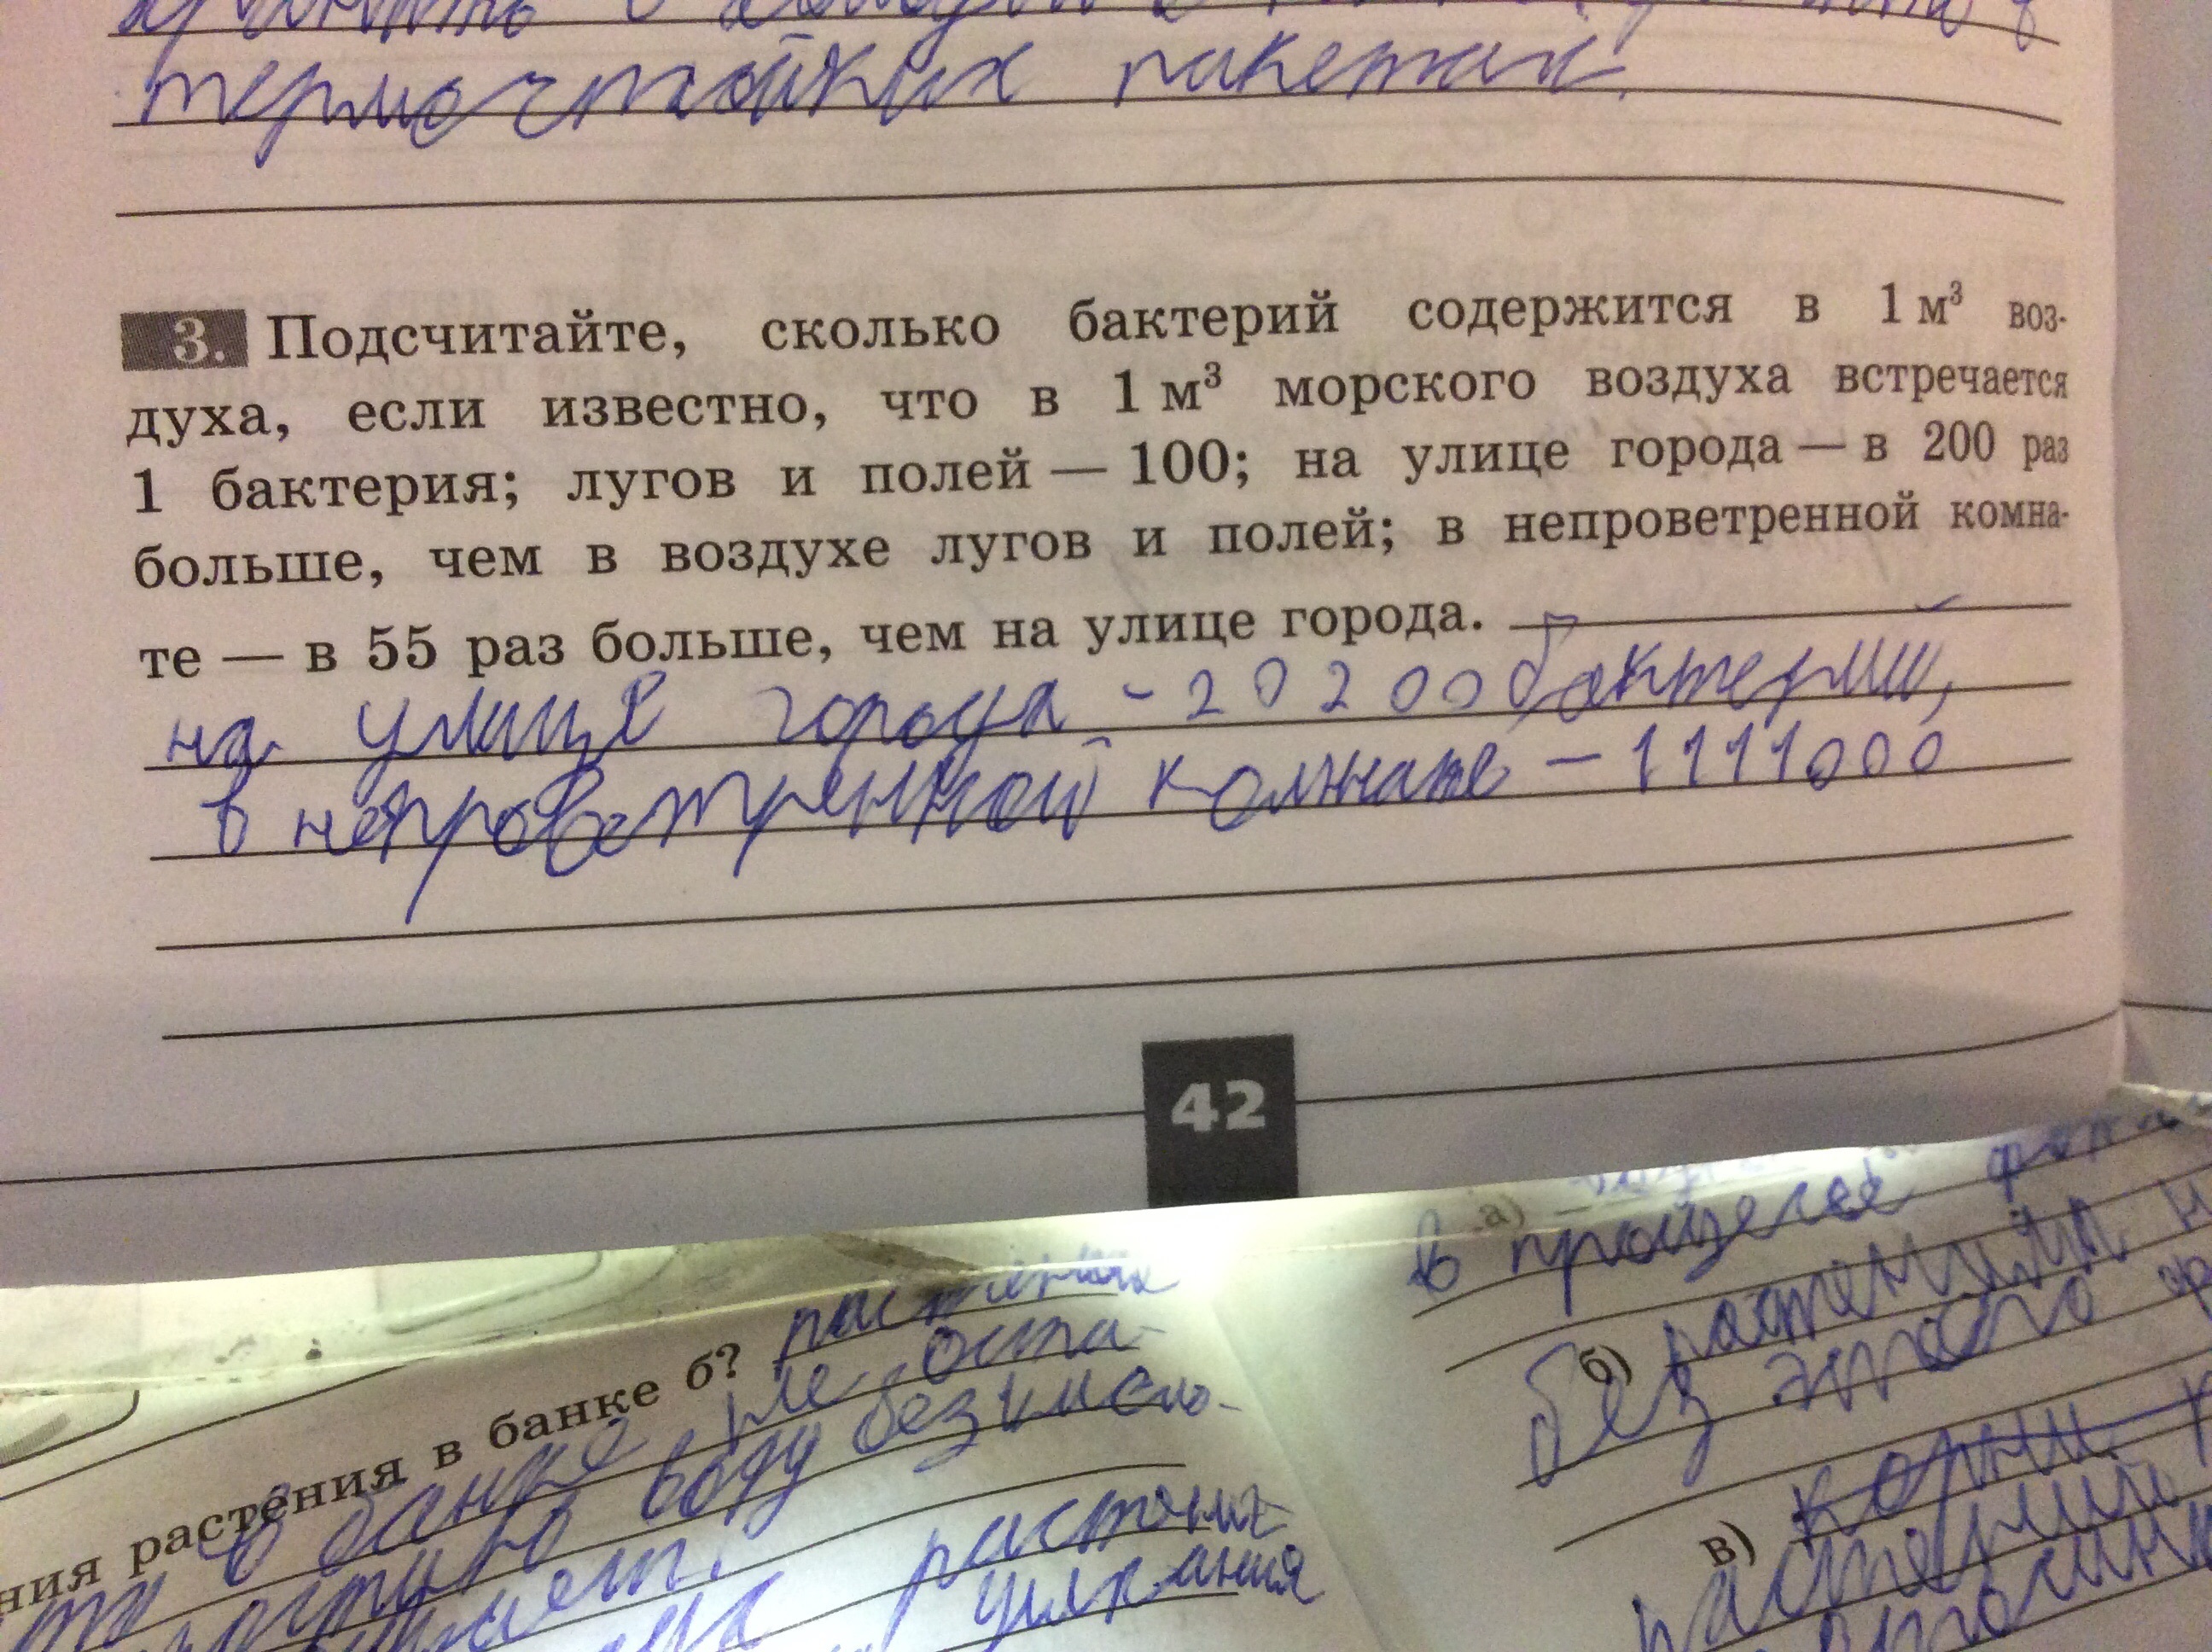 термостойких пакетах.
3. Подсчитайте, сколько бактерий содержится в 1 м³ воз-
духа, если известно, что в 1 м³ морского воздуха встречается
1 бактерия; лугов и полей — 100; на улице города — в 200 раз
больше, чем в воздухе лугов и полей; в непроветренной комна-
те — в 55 раз больше, чем на улице города.
на улице города - 20200 бактерий,
в непроветренной комнате - 1111000
42
а)
в процессе
ния растения в банке б? растения
в банке не оста-
воду без кисло-
б) растениям
без этого
в) корни
растений